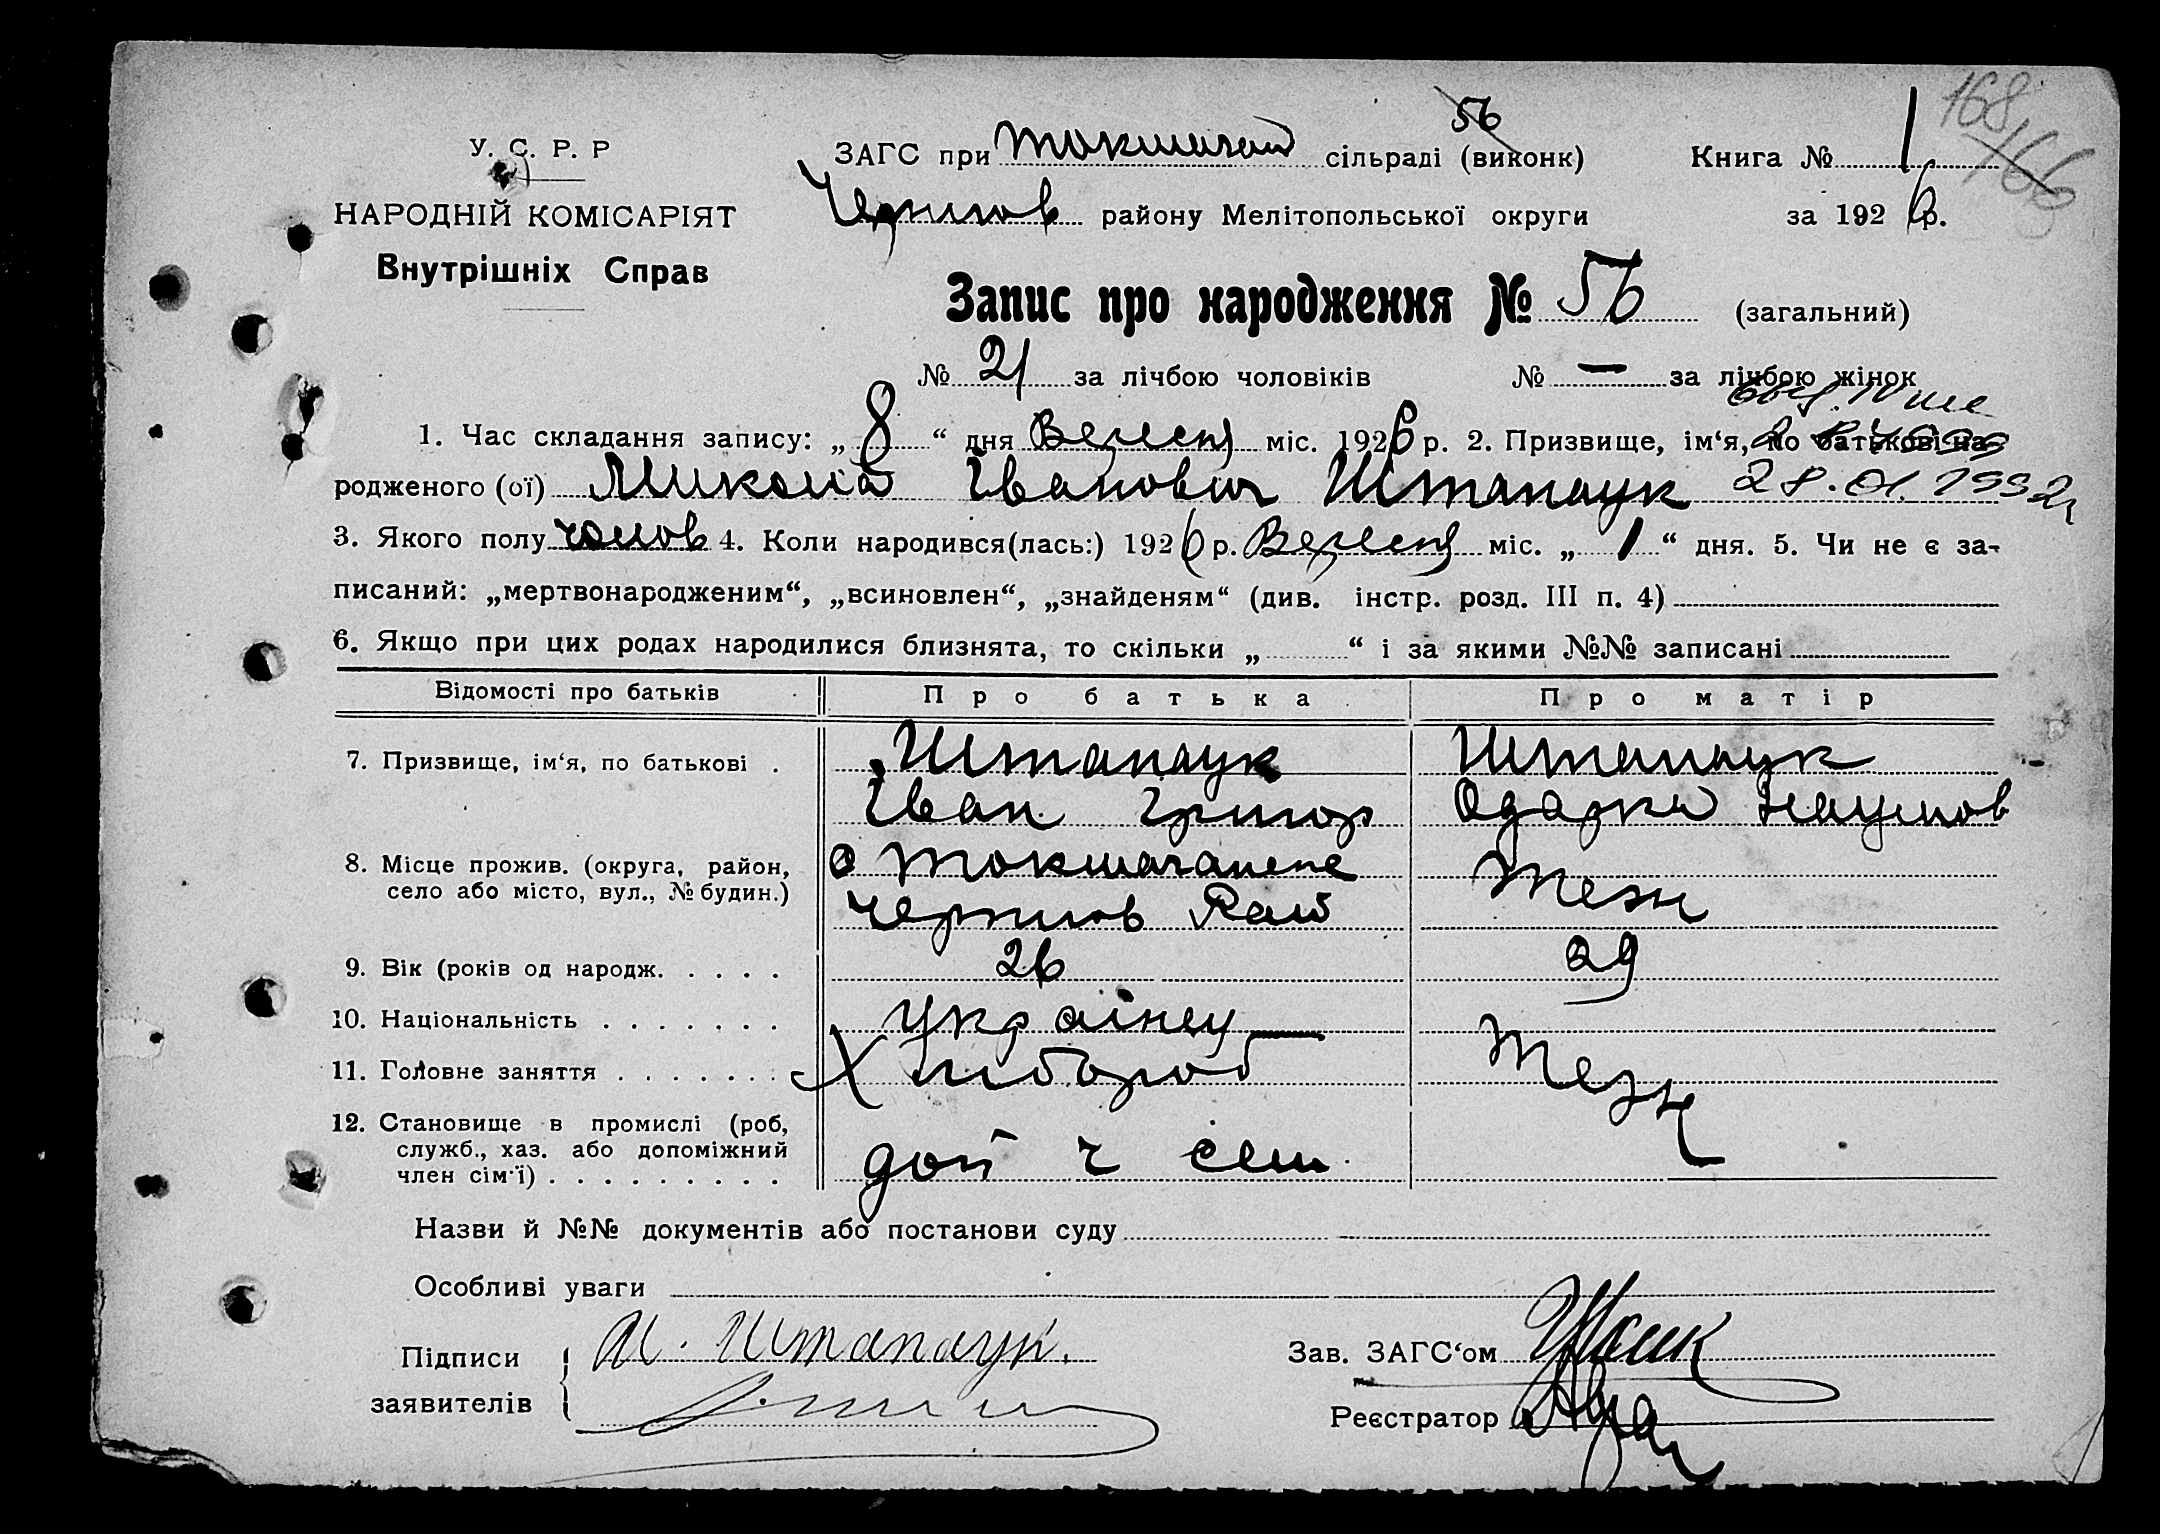 168
166
56
У. С. Р. Р
НАРОДНІЙ КОМІСАРІЯТ
Внутрішніх Справ
ЗАГС при Токмачан сільраді (виконк) Книга № 1
Чернигов району Мелітопольської округи за 1926 р.
Запис про народження № 56 (загальний)
№ 21 за лічбою чоловіків № — за лічбою жінок
1. Час складання запису: „ 8 “ дня Вересня міс. 1926 р. 2. Призвище, ім‘я, по батькові на-
родженого (ої) Микола Іванович Штапаук 28.01.1992г
3. Якого полу чолов 4. Коли народився(лась:) 1926 р. Вересня міс. „ 1 “ дня. 5. Чи не є за-
писаний: „мертвонародженим“, „всиновлен“, „знайденям“ (див. інстр. розд. III п. 4)
6. Якщо при цих родах народилися близнята, то скільки „ “ і за якими №№ записані
Відомості про батьків Про батька Про матір
7. Призвище, ім‘я, по батькові . Штапаук Штапаук
Іван Григор Одарка Наумов
8. Місце прожив. (округа, район,
село або місто, вул., № будин.)
Теж
9. Вік (років од народж. . . . . 26 29
10. Національність . . . . . . . Українец —
11. Головне заняття . . . . . . . Хлібороб Теж
12. Становище в промислі (роб,
служб., хаз. або допоміжний
член сім‘ї) . . . . . . . . . доп ч сем
Назви й №№ документів або постанови суду
Особливі уваги
Підписи И. Штапаук. Зав. ЗАГС‘ом
заявителів Реєстратор